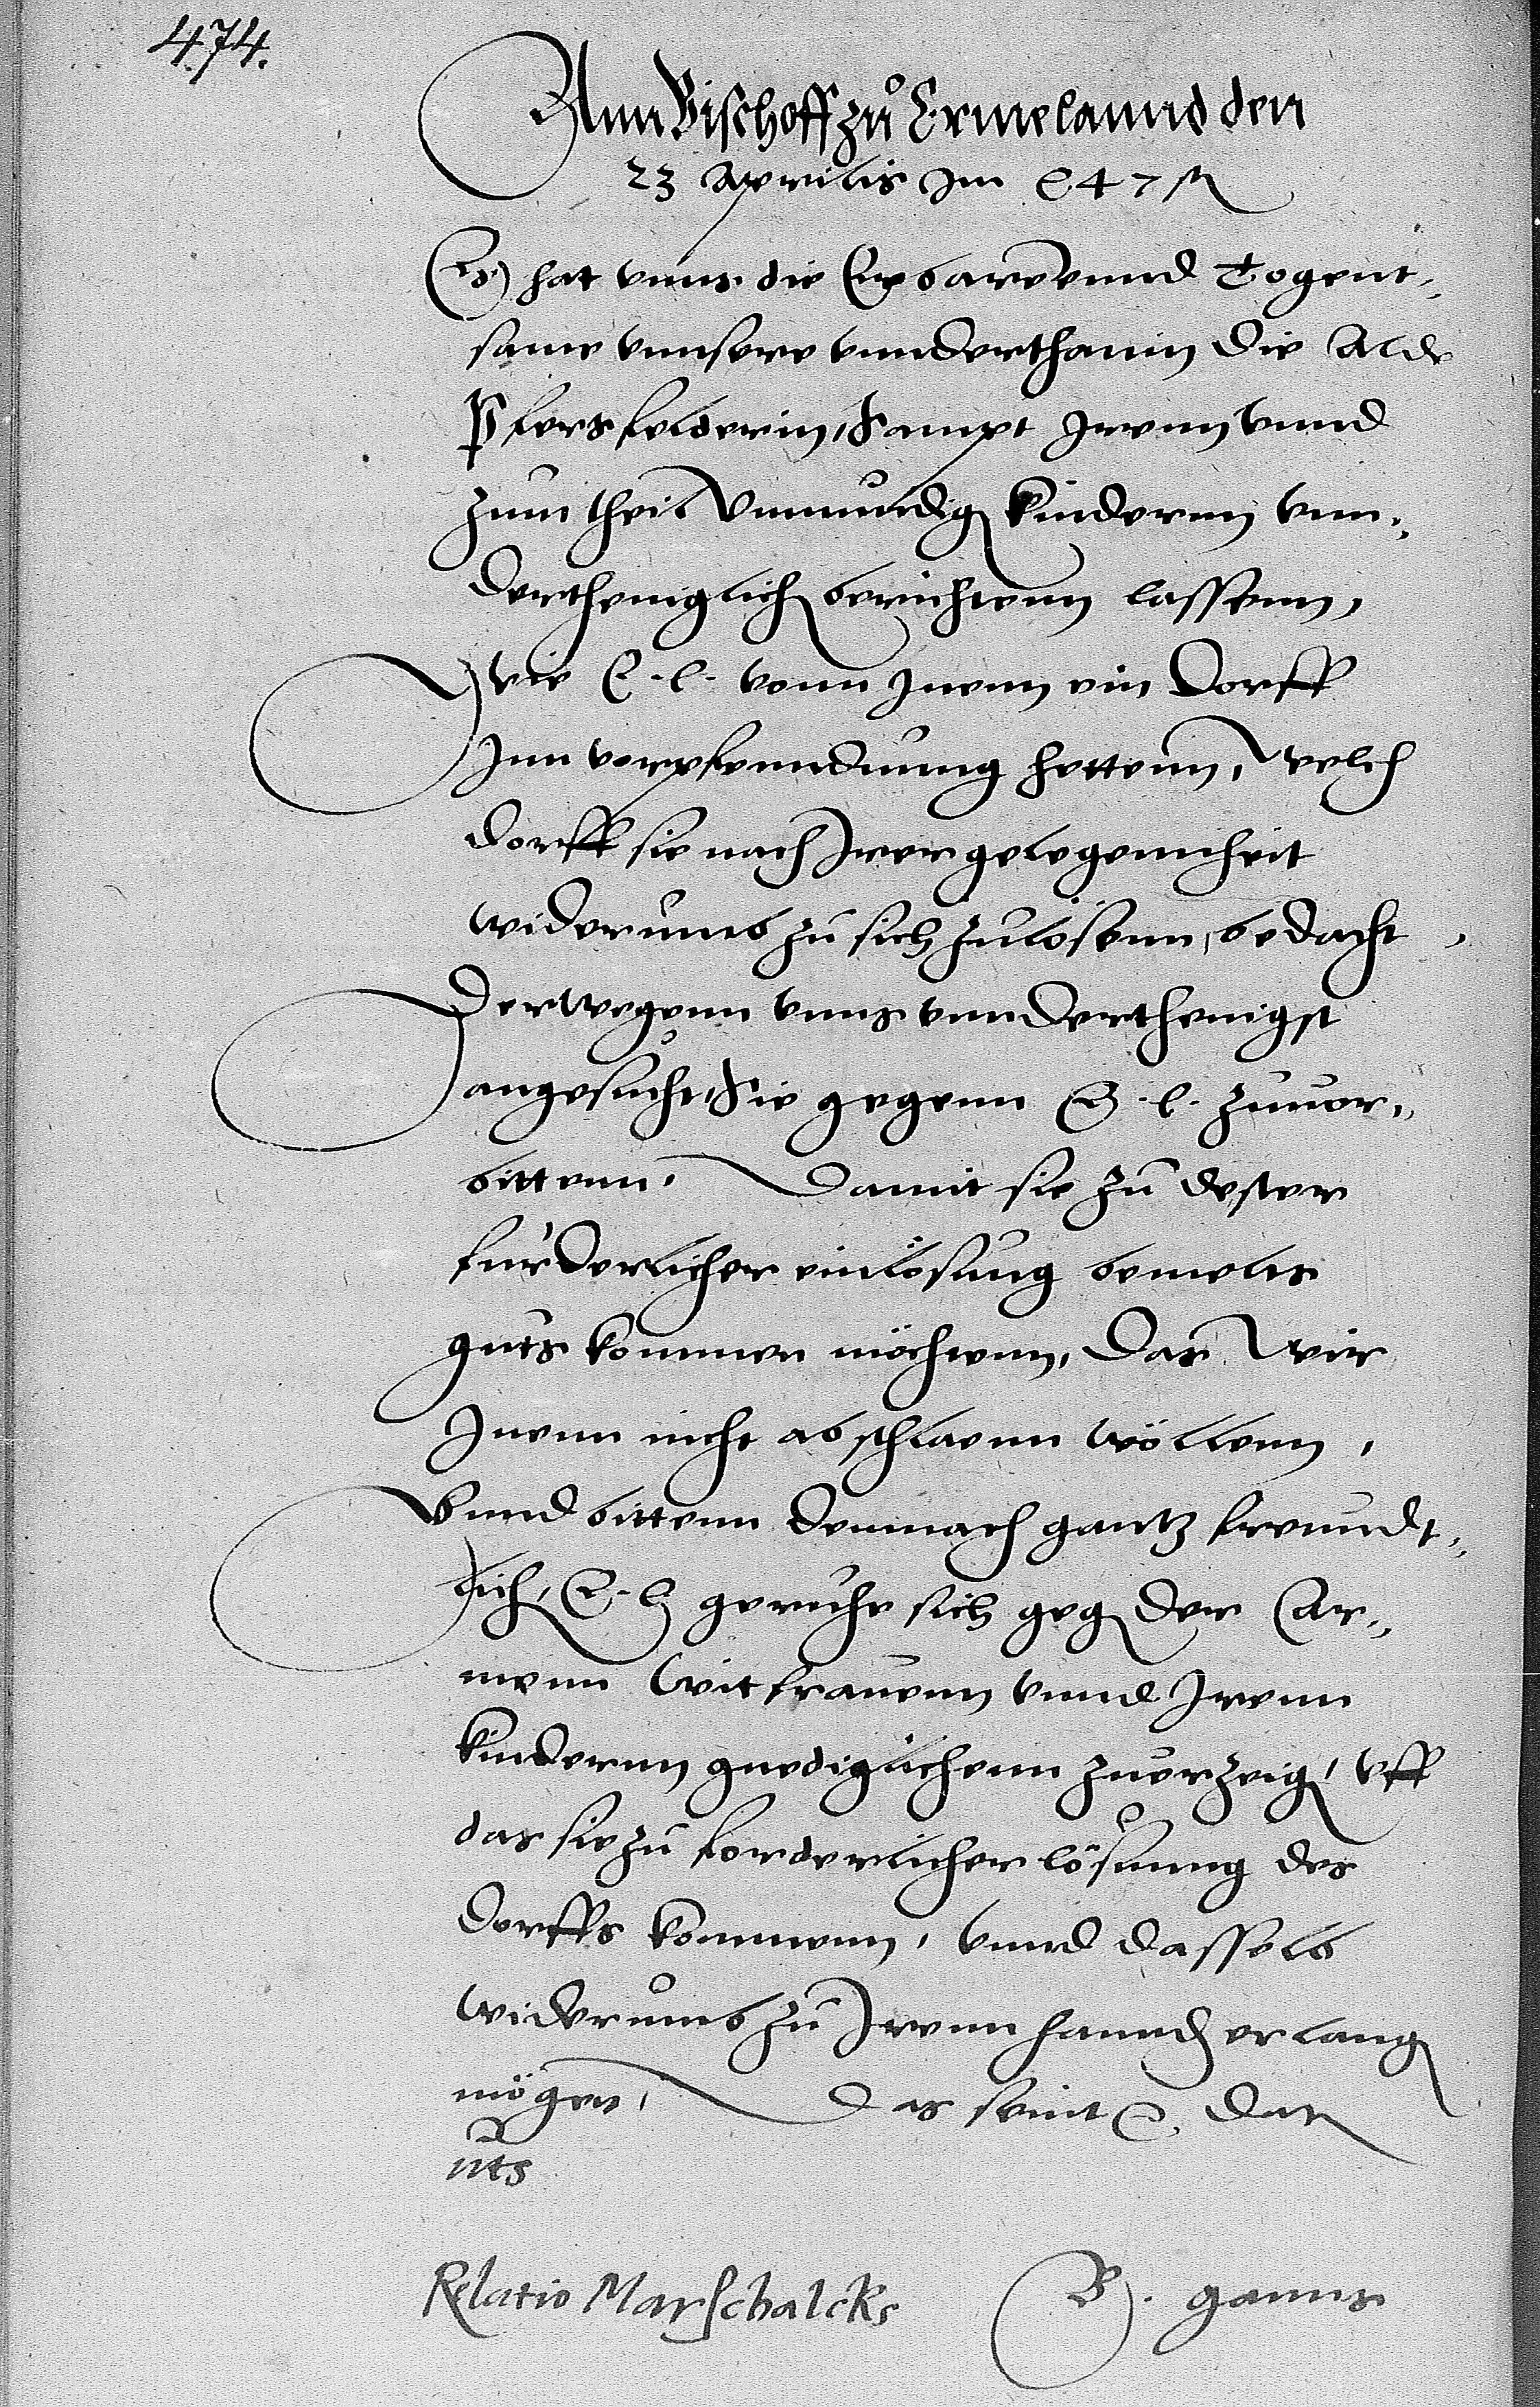 474.
Ann Bischoff zů Ermelannd den
23 Aprilis Im 47
Es hat vnns die Erbare vnnd Togent„
same vnnsere vnnderthanin die Alde
Pfersfelderin, Sampt Irenn vnnd
zum theil Vnmundig Kinderenn vnn„
dertheniglich berichtenn lassenn,
wie E. l. vonn Inenn ein Dorff
Inn verpfenndunng hettenn, welch
dorff sie nach Irer gelegennheit
widerumb zu sich zulösenn, bedacht,
Derwegenn vnns vnnderthenigst
angesucht, Sie gegenn E. l. zuuor„
bittenn, Damit sie zu dester
furderlicher einlösung bemelts
guts kommen möchtenn, Das wir
Inenn nicht abschlaenn wöllenn,
Vnnd bittenn demnach gantz freundt„
lich, E. l. geruhe sich geg der Ar„
menn witfrauenn vnnd Irenn
Kinderenn gnediglichenn zuerzeig, vff
das sie zu forderlicher lösunng des
dorffs kommenn, vnnd dasselb
widerumb zu Irenn hannd erlang
mögen, Das seint Dat
uts
Relatio Marschalcks B. Ganns